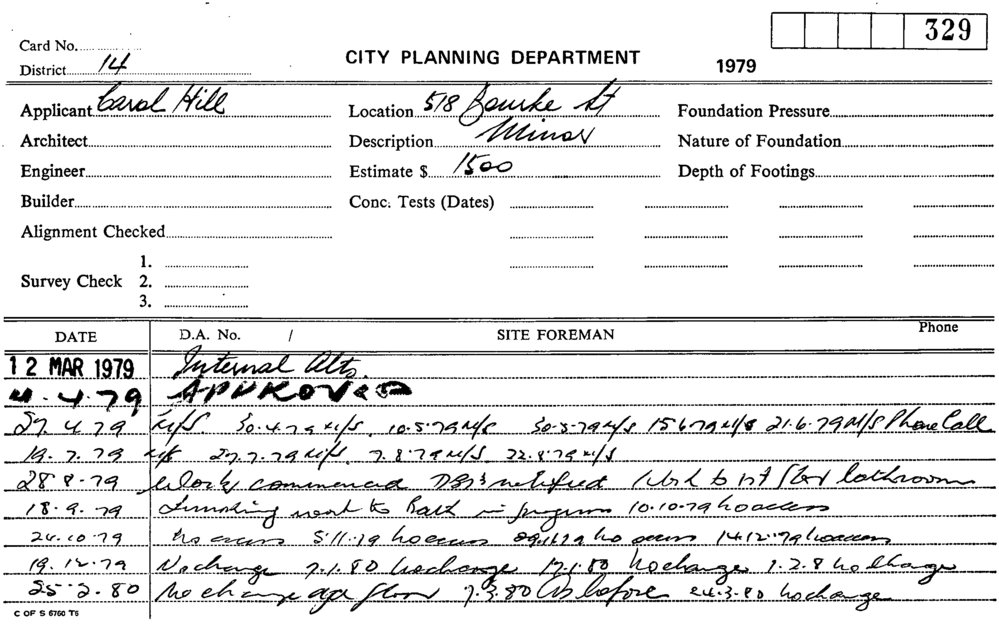 329
Card No.
District 14
CITY PLANNING DEPARTMENT
1979
Applicant Carol Hill
Location 518 Bourke St
Foundation Pressure
Architect
Description Minor
Nature of Foundation
Engineer
Estimate $ 1500
Depth of Footings
Builder
Conc. Tests (Dates)
Alignment Checked
Survey Check
1.
2.
3.
DATE D.A. No. / SITE FOREMAN Phone
12 MAR 1979 Internal Alts.
4.4.79 APPROVED
27.4.79 N/S. 30.4.79 N/S. 10.5.79 N/S 30.5.79 N/S 15.6.79 N/S 21.6.79 N/S Phone Call
19.7.79 N/S 27.7.79 N/S. 7.8.79 N/S 22.8.79 N/S
28.8.79 Work commenced notified to 1st floor bathroom
18.9.79 work to Bath in progress 10.10.79 no access
24.10.79 no access 5.11.79 no access no access 14.12.79 no access
19.12.79 No change 7.1.80 no change 17.1.80 No change 1.2.8 no change
25.2.80 No change floor 7.3.80 As before 24.3.80 no change
C OF S 6760 T6